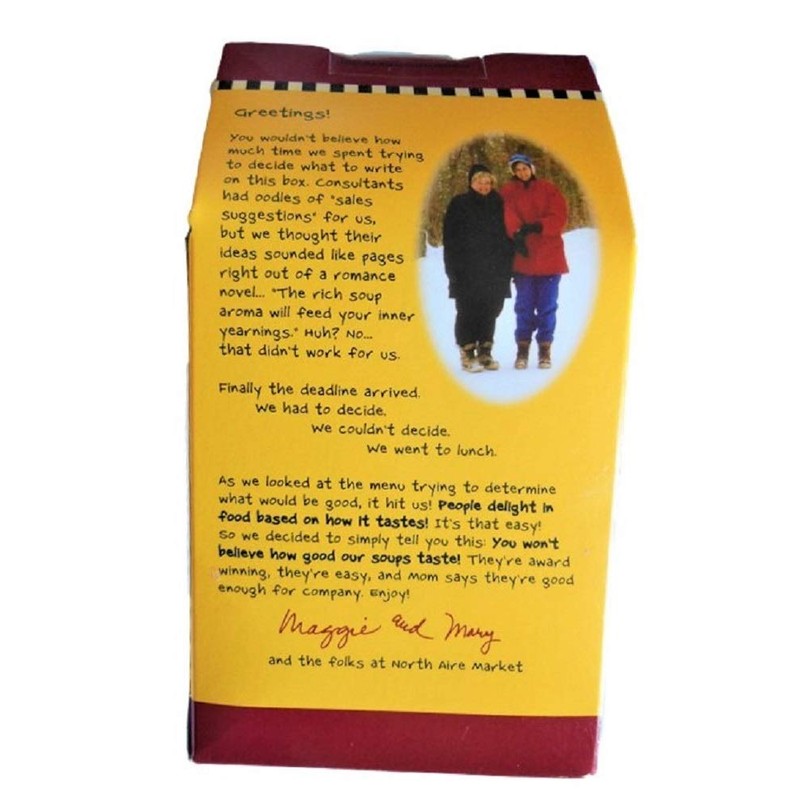 Greetings!
You wouldn't believe how
much time we spent trying
to decide what to write
on this box. Consultants
had oodles of "sales
suggestions" for us,
but we thought their
ideas sounded like pages
right out of a romance
novel... "The rich soup
aroma will feed your inner
yearnings." Huh? No...
that didn't work for us.
Finally the deadline arrived.
We had to decide.
We couldn't decide.
We went to lunch.
As we looked at the menu trying to determine
what would be good, it hit us! People delight in
food based on how it tastes! It's that easy!
So we decided to simply tell you this: You won't
believe how good our soups taste! They're award
winning, they're easy, and Mom says they're good
enough for company. Enjoy!
Maggie and Mary
and the folks at North Aire Market